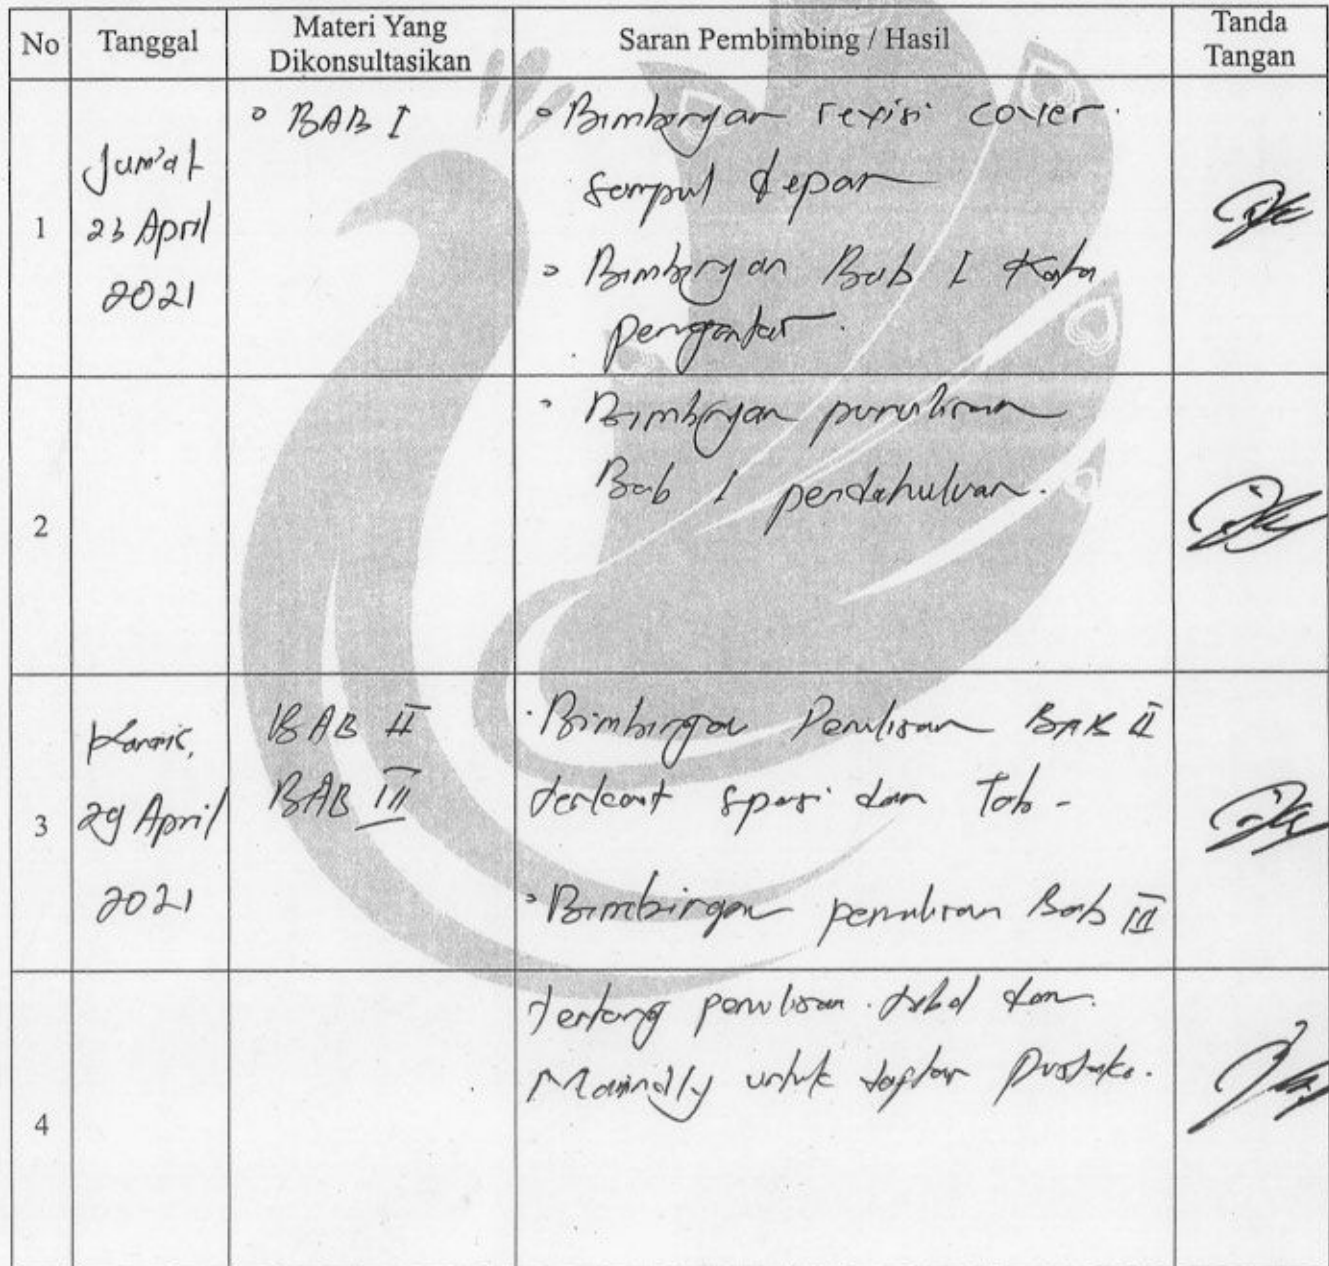 No
Tanggal
Materi Yang
Dikonsultasikan
Saran Pembimbing / Hasil
Tanda
Tangan
1
Jum'at
23 April
2021
° BAB I
° Bimbingan revisi cover.
sampul depan
° Bimbingan Bab I Kata
pengantar.
2
· Bimbingan penulisan
Bab I pendahuluan.
3
Kamis,
29 April
2021
BAB II
BAB III
· Bimbingan Penulisan BAB II
terkait spasi dan Tab -
° Bimbingan penulisan Bab III
4
tentang penulisan tabel dan
untuk daftar Pustaka.